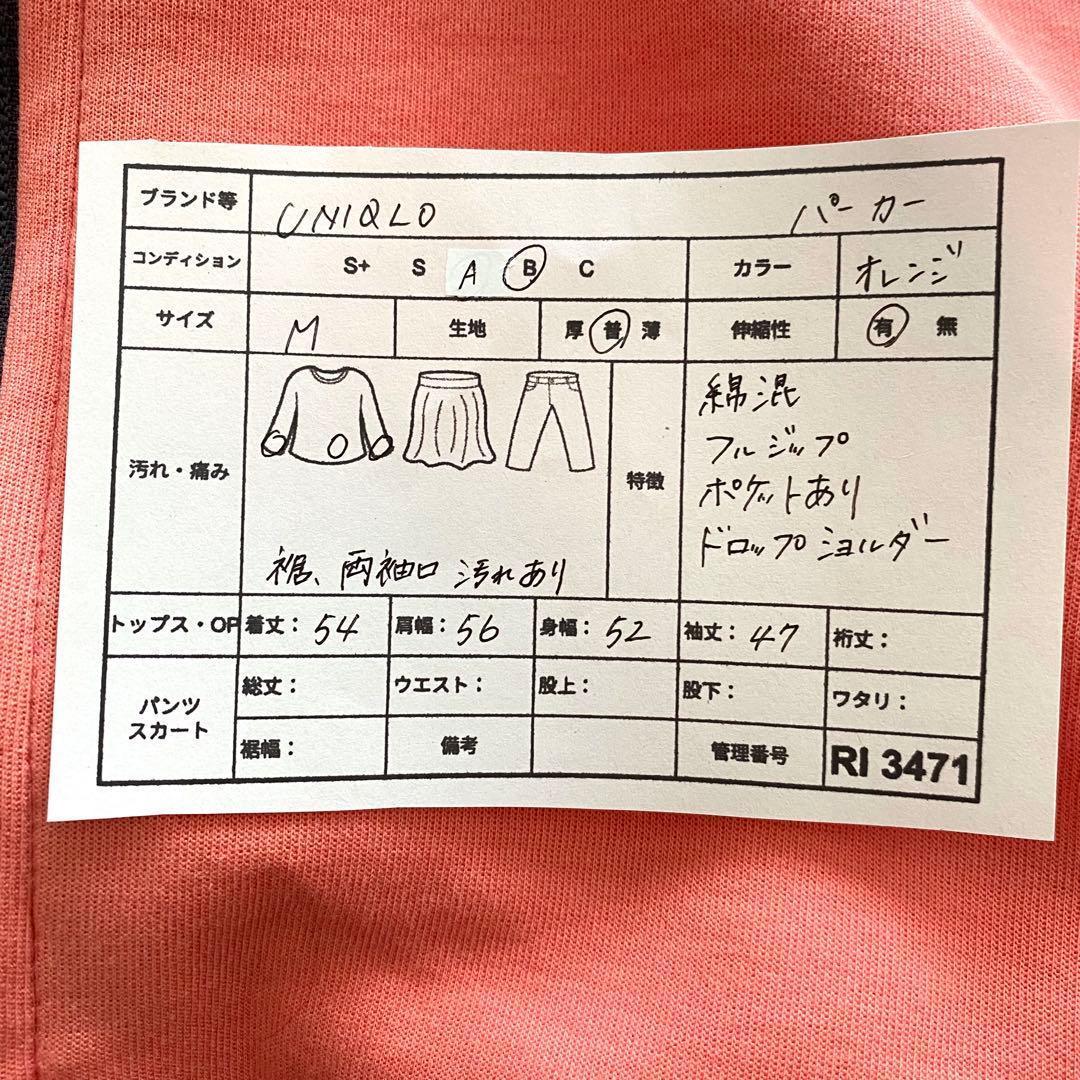 ブランド等 UNIQLO パーカー
コンディション S+ S A B C カラー オレンジ
サイズ M 生地 厚 普 薄 伸縮性 有 無
汚れ・痛み 裾、両袖口 汚れあり
特徴 綿混
フルジップ
ポケットあり
ドロップショルダー
トップス・OP 着丈：54 肩幅：56 身幅：52 袖丈：47 裄丈：
パンツ スカート 総丈： ウエスト： 股上： 股下： ワタリ：
裾幅： 備考 管理番号 RI 3471